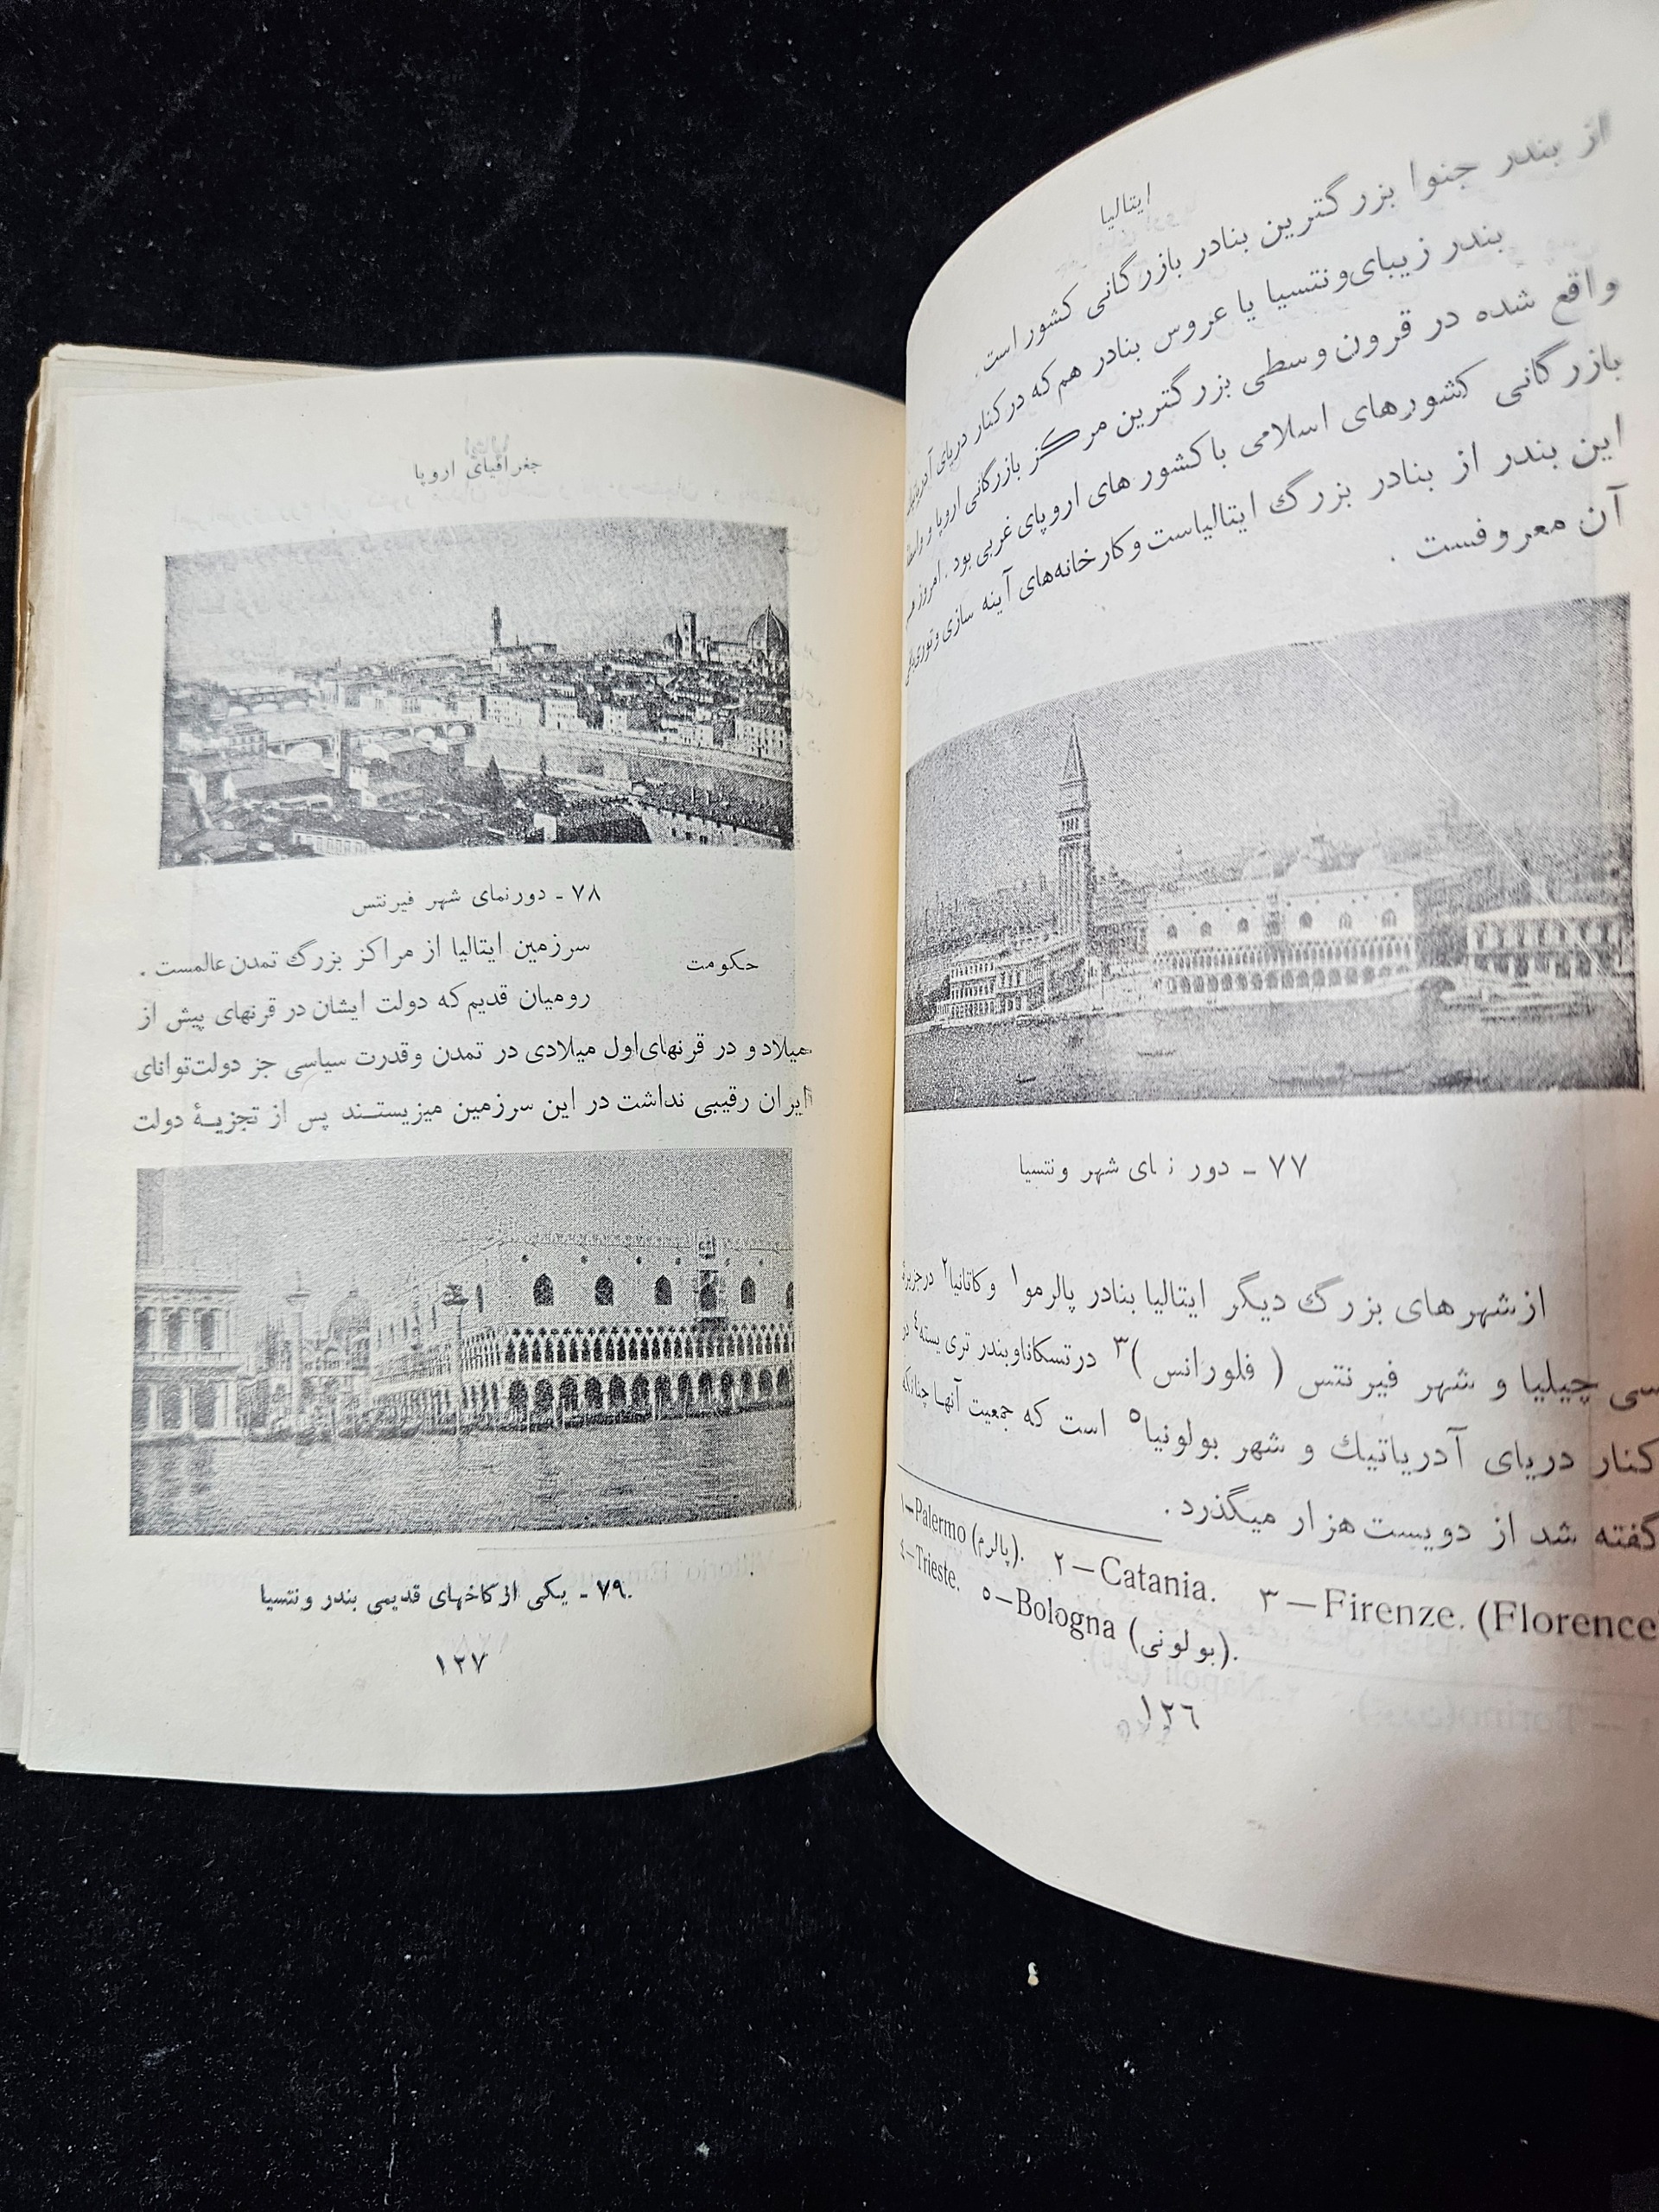 ایتالیا
از بندر جنوا بزرگترین بنادر بازرگانی کشور است.
بندر زیبای ونتسیا یا عروس بنادر هم که در کنار دریای
واقع شده در قرون وسطی بزرگترین مرکز بازرگانی اروپا و
بازرگانی کشورهای اسلامی با کشور های اروپای غربی بود . امروز هم
این بندر از بنادر بزرگ ایتالیاست و کارخانه‌های آینه سازی و
آن معروفست .
۷۷ ـ دور نمای شهر ونتسیا
از شهر های بزرگ دیگر ایتالیا بنادر پالرمو۱ و کاتانیا۲ در جزیرهٔ
سی چیلیا و شهر فیرنتس ( فلورانس )۳ در تسکانا و بندر تری یسته۴ در
کنار دریای آدریاتیك و شهر بولونیا۵ است که جمعیت آنها چنانکه
گفته شد از دویست هزار میگذرد .
۱—Palermo (پالرم). ۲—Catania. ۳—Firenze. (Florence)
۴—Trieste. ۵—Bologna (بولونی).
۱۲۶
جغرافیای اروپا
۷۸ ـ دورنمای شهر فیرنتس
حکومت
سرزمین ایتالیا از مراکز بزرگ تمدن عالمست .
رومیان قدیم که دولت ایشان در قرنهای پیش از
میلاد و در قرنهای اول میلادی در تمدن و قدرت سیاسی جز دولت توانای
ایران رقیبی نداشت در این سرزمین میزیستند پس از تجزیهٔ دولت
۷۹ ـ یکی از کاخهای قدیمی بندر ونتسیا.
۱۲۷